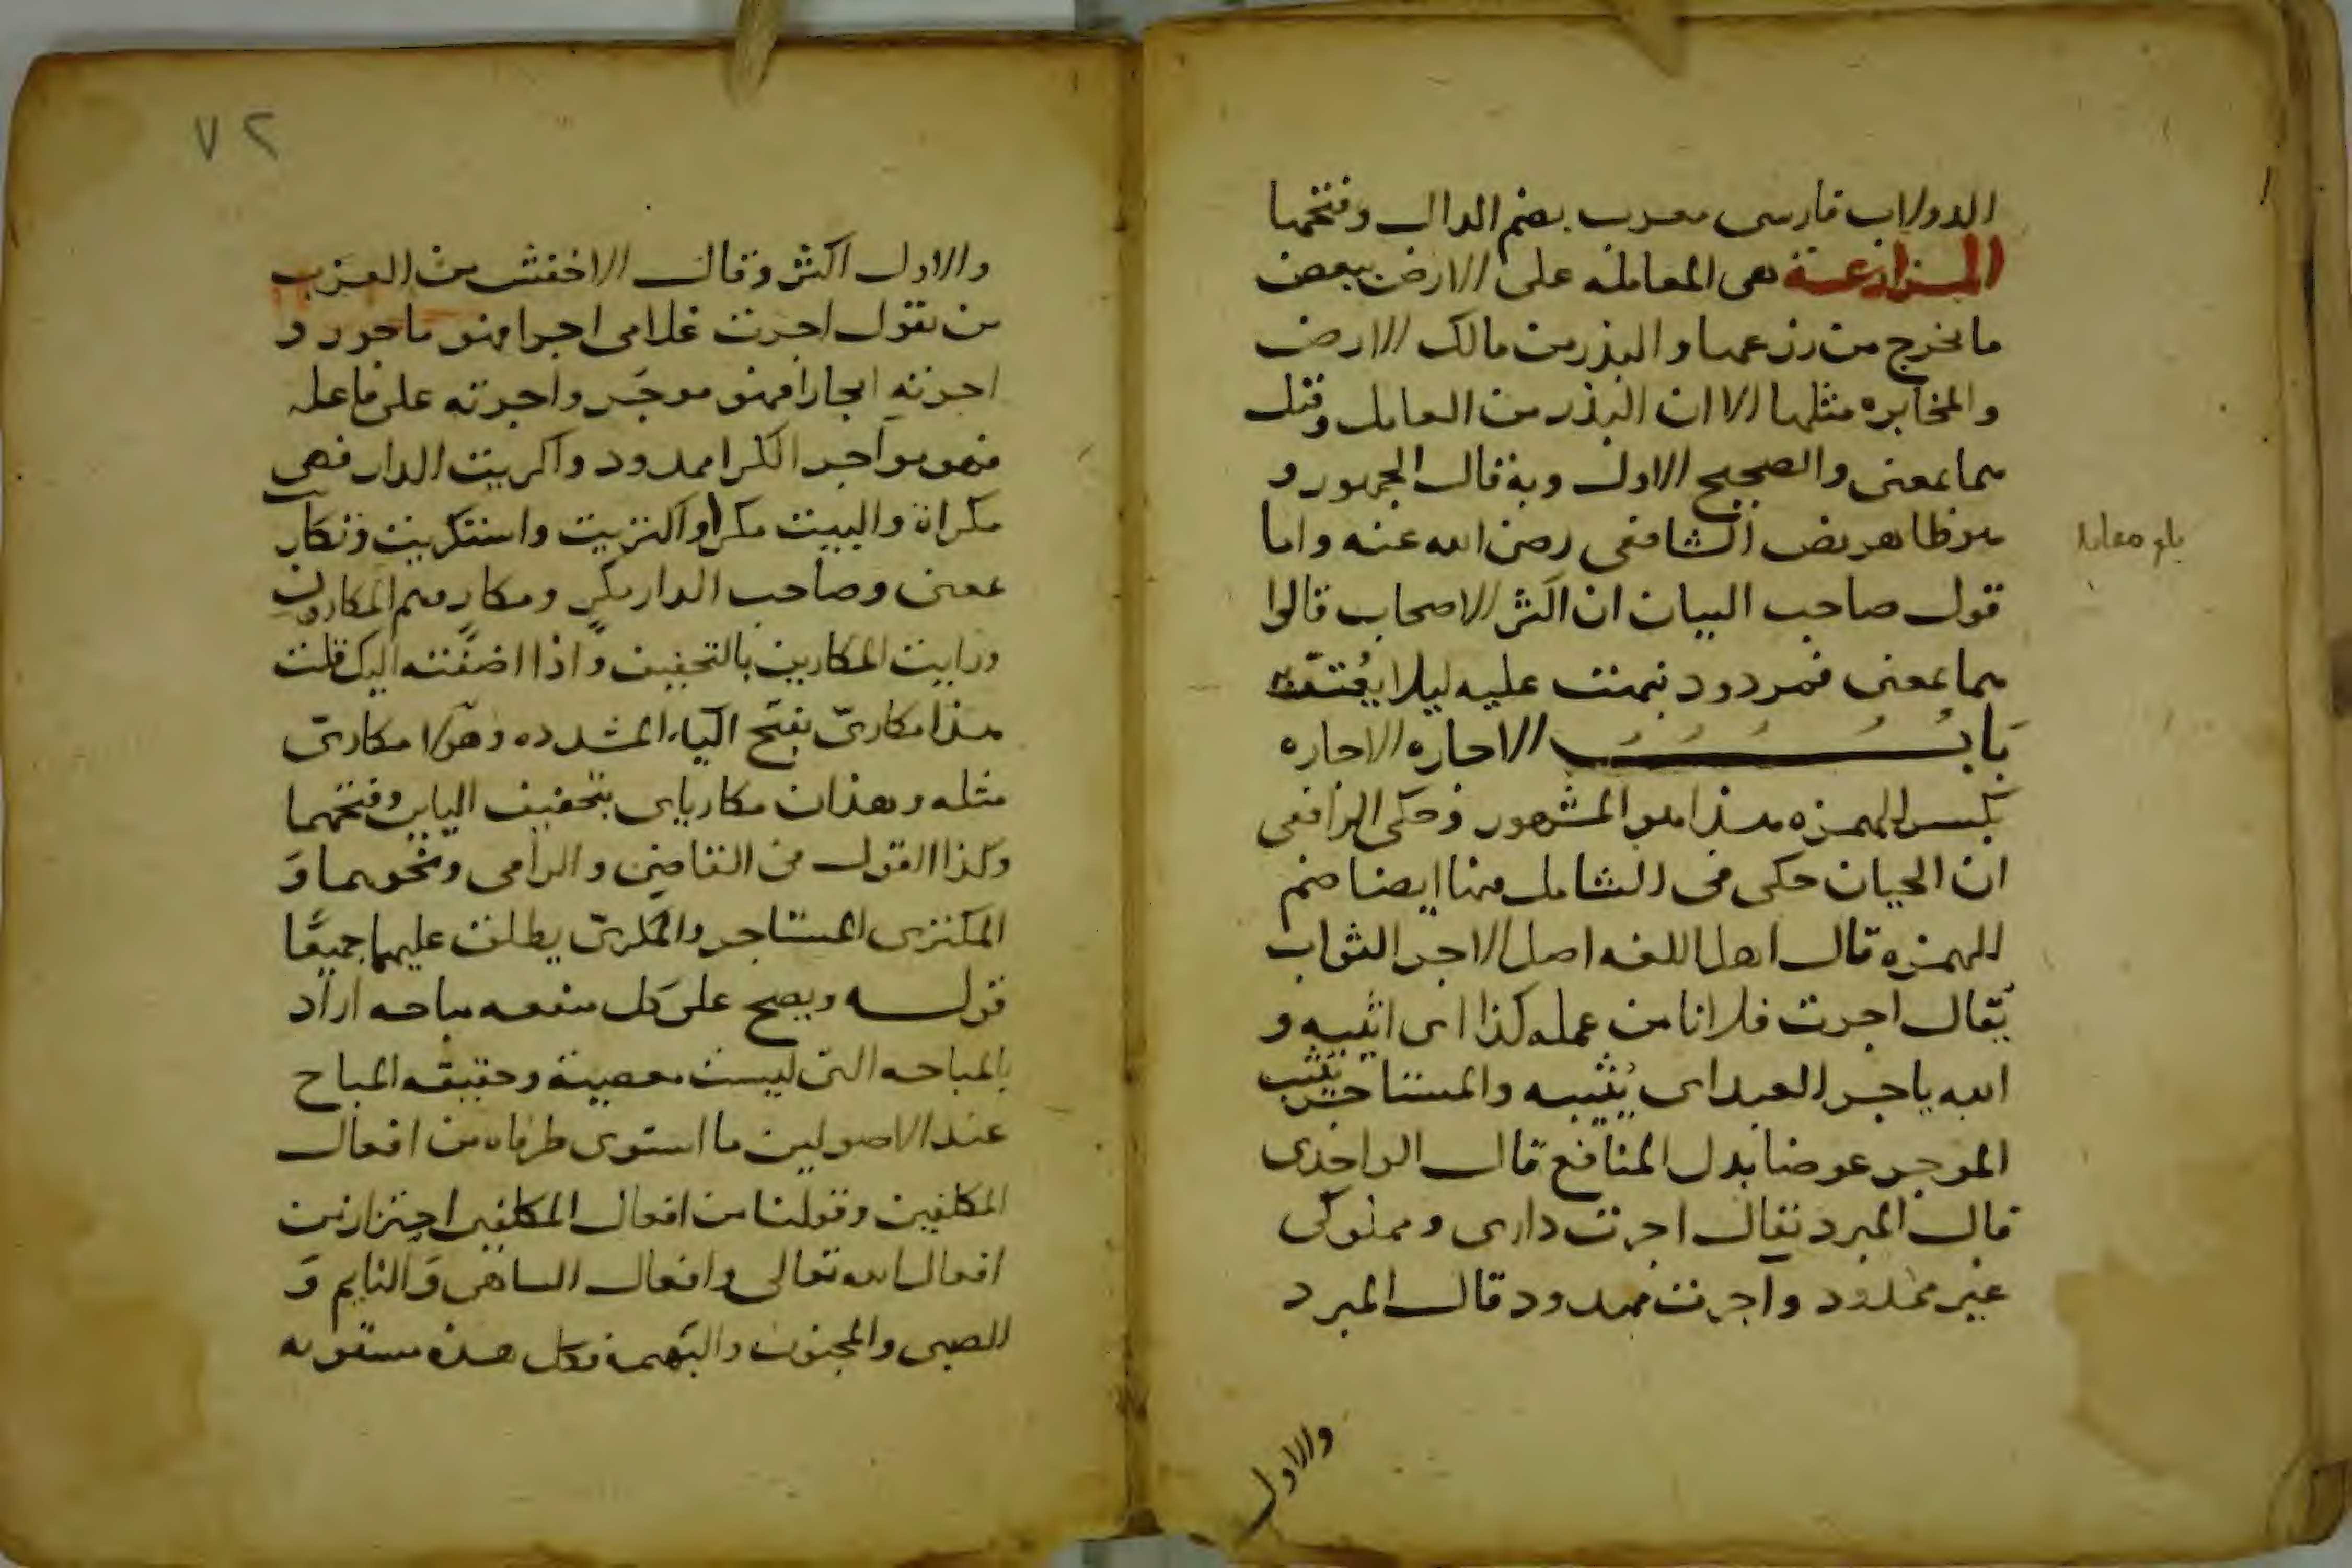 الدولاب فارسى معرب بضم الدال وفتحها
المزارعة هى المعاملة على الارض ببعض
ما يخرج من زرعها والبذر من مالك الارض
والمخابره مثلها الا ان البذر من العامل وقيل
هما بمعنى والصحيح الاول وبه قال الجمهور و
هو ظاهر نص الشافعى رضى الله عنه واما
قول صاحب البيان ان اكثر الاصحاب قالوا
هما بمعنى فمردود نبهت عليه ليلا يغتر به
باب الاجاره الاجاره
بكسر الهمزه هذا هو المشهور وحكى الرافعى
ان الجيان حكى فى الشامل هنا ايضا ضم
الهمزه قال اهل اللغه اصل الاجر الثواب
يقال اجرت فلانا من عمله كذا اى اثيبه و
الله ياجر العبد اى يثيبه والمستاجر يثيب
الموجر عوضا بدل المنافع قال الواحدى
قال المبرد يقال اجرت دارى ومملوكى
غير ممدود واجرت ممدود قال المبرد
والاول
بلغ مقابله
٧٢
والاول اكثر وقال الاخفش من العرب
من يقول اجرت غلامى اجرا فهو ماجور و
اجرته ايجارا فهو موجر واجرته على فاعله
فهو مواجر الكرا ممدود واكريت الدار فهى
مكراة والبيت مكرا واكتريت واستكريت وتكاريت
بمعنى وصاحب الدار مكرٍ ومكارٍ وهم المكارون
ورايت المكارين بالتخفيف واذا اضفته اليك قلت
هذا مكارىّ بفتح الياء المشدده وهؤلا مكارىّ
مثله وهذان مكارياى بتخفيف اليايين وفتحهما
وكذا القول فى القاضى والرامى ونحوهما و
المكترى المستاجر والمكرىّ يطلق عليهما جميعًا
قوله ويصح على كل منفعه مباحه اراد
بالمباحه التى ليست معصية وحقيقه المباح
عند الاصولين ما استوى طرفاه من افعال
المكلفين وقولنا من افعال المكلفين احتراز من
افعال الله تعالى وافعال الساهى والنايم و
الصبى والمجنون والبهيمه فكل هذه مستويه